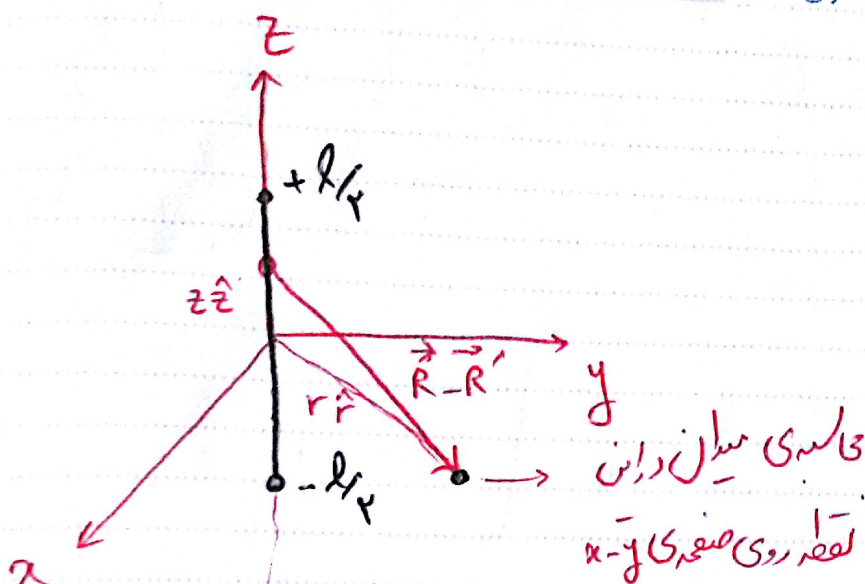 z
+ l/۲
z ẑ
R⃗ - R⃗′
r r̂
y
- l/۲
محاسبه‌ی میدان در این
نقطه روی صفحه‌ی x-y
x